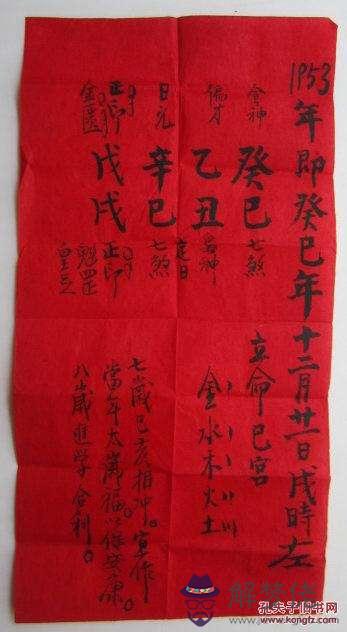 1953年即癸巳年十二月廿一日戌時左
食神 癸巳 七煞 立命巳宮
偏才 乙丑 金水木火土
日元 辛巳 七煞
正印 戊戌 正印
金匱 魁罡
七歲巳亥相冲。宜作
當年太歲福以保安康。
八歲進學合利。
孔夫子旧书网
book.kongfz.com